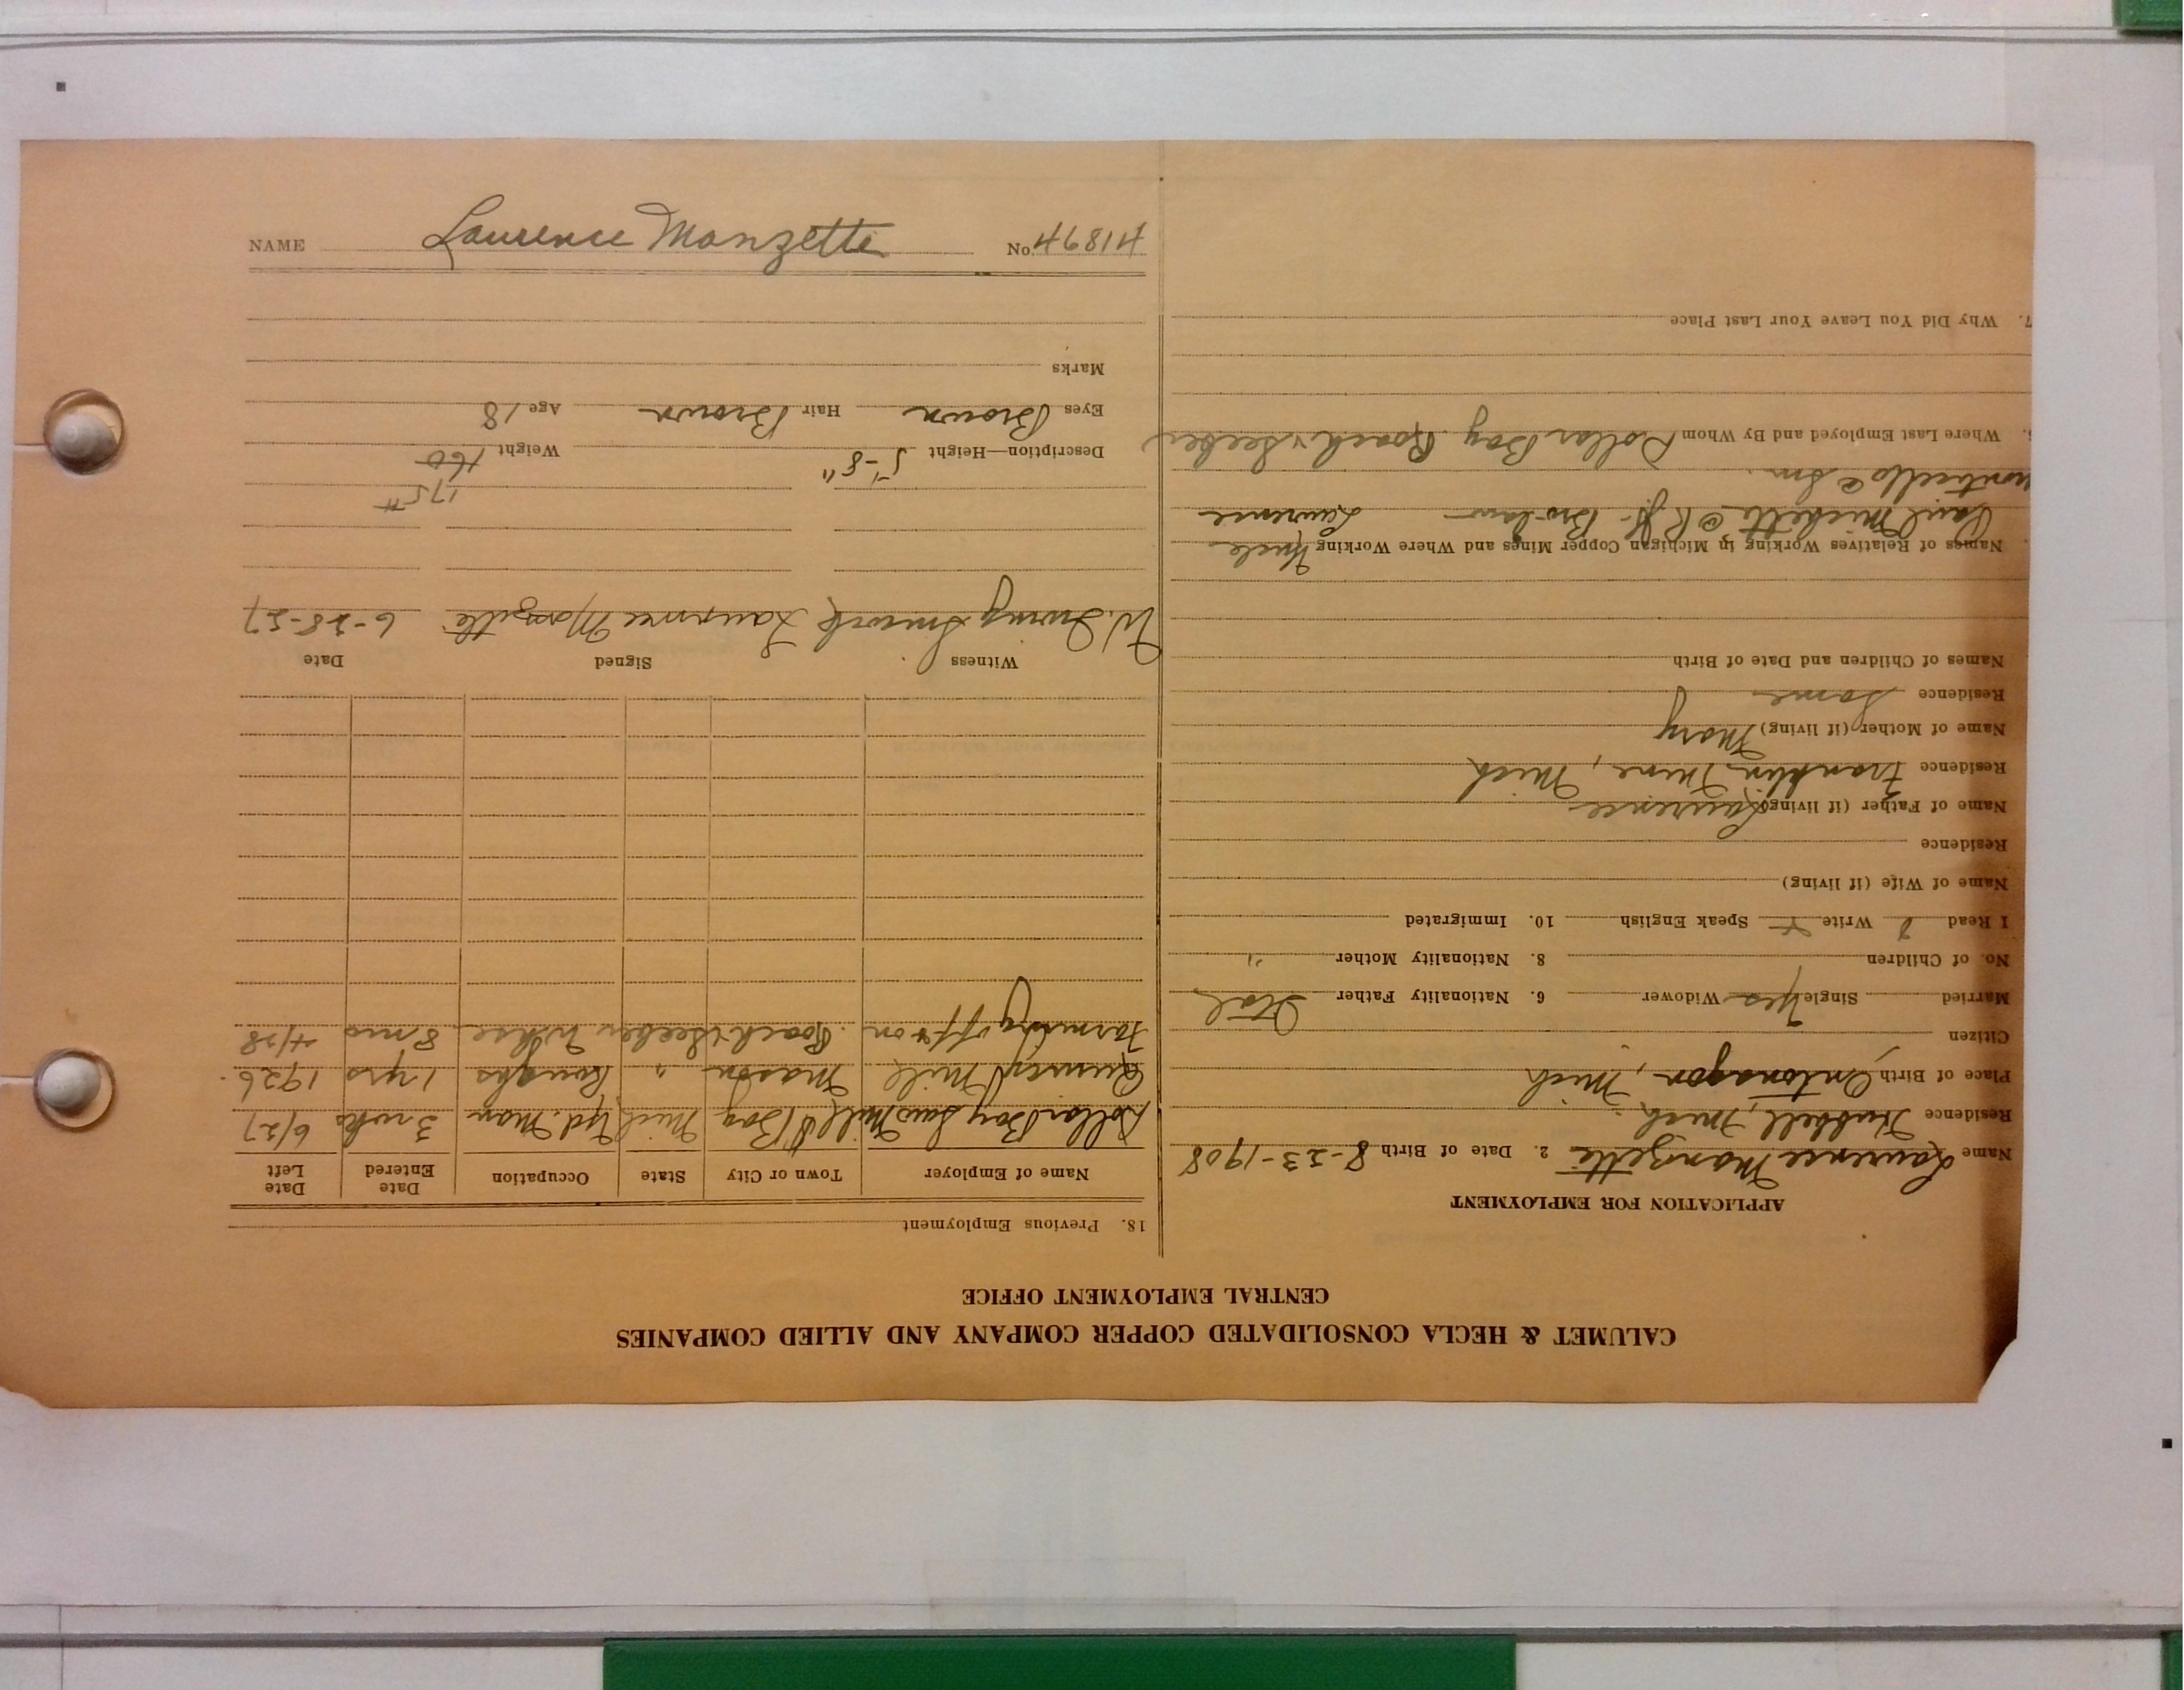 NAME Laurence Manzette No. 46814
CALUMET & HECLA CONSOLIDATED COPPER COMPANY AND ALLIED COMPANIES
CENTRAL EMPLOYMENT OFFICE
APPLICATION FOR EMPLOYMENT
Name Laurence Manzette 2. Date of Birth 8-23-1908
Residence Hubbell, Mich.
Place of Birth Ontonagon, Mich
Citizen
Married Single Yes Widower 6. Nationality Father Ital
No. of Children 8. Nationality Mother "
I Read Write Speak English 10. Immigrated
Name of Wife (if living)
Residence
Name of Father (if living) Laurence
Residence Franklin Mine, Mich
Name of Mother (if living) Mary
Residence Same
Names of Children and Date of Birth
Names of Relatives Working in Michigan Copper Mines and Where Working Uncle
Paul Michetti @ R.R. - Bro-law Laurence
Monticello @ Sm.
Where Last Employed and By Whom Dollar Bay Roach & Seeber
7. Why Did You Leave Your Last Place
18. Previous Employment
Name of Employer Town or City State Occupation Date Entered Date Left
Dollar Bay Saw Mill D/Bay Mich Yd. Man 3 wks 6/27
Quincy Mill Mason " Roughs 1 yrs 1926.
Farming off & on Roach & Seeber Whse 8 mos 4/28
Witness Signed Date
W. Irving Laurence Manzette 6-28-27
175#
Description—Height 5'-8" Weight 160
Eyes Brown Hair Brown Age 18
Marks